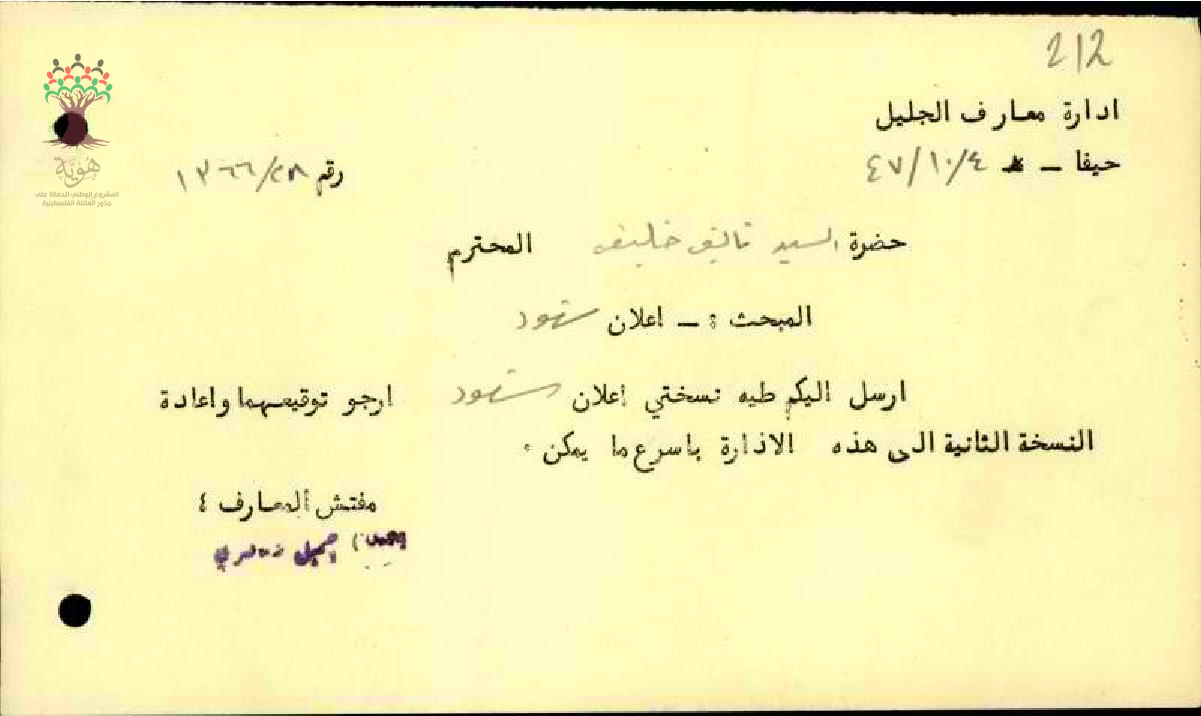 212
ادارة معارف الجليل
حيفا ـ ٤٧/١٠/٤
رقم ١٣٦٦/٢٨
حضرة السيد خليفه المحترم
المبحث : ـ اعلان
ارسل اليكم طيه نسختي إعلان ارجو توقيعهما واعادة
النسخة الثانية الى هذه الاذارة باسرع ما يمكن .
مفتش المعارف ٤
جميل
هُوِيَّة
المشروع الوطني للحفاظ على
جذور العائلة الفلسطينية